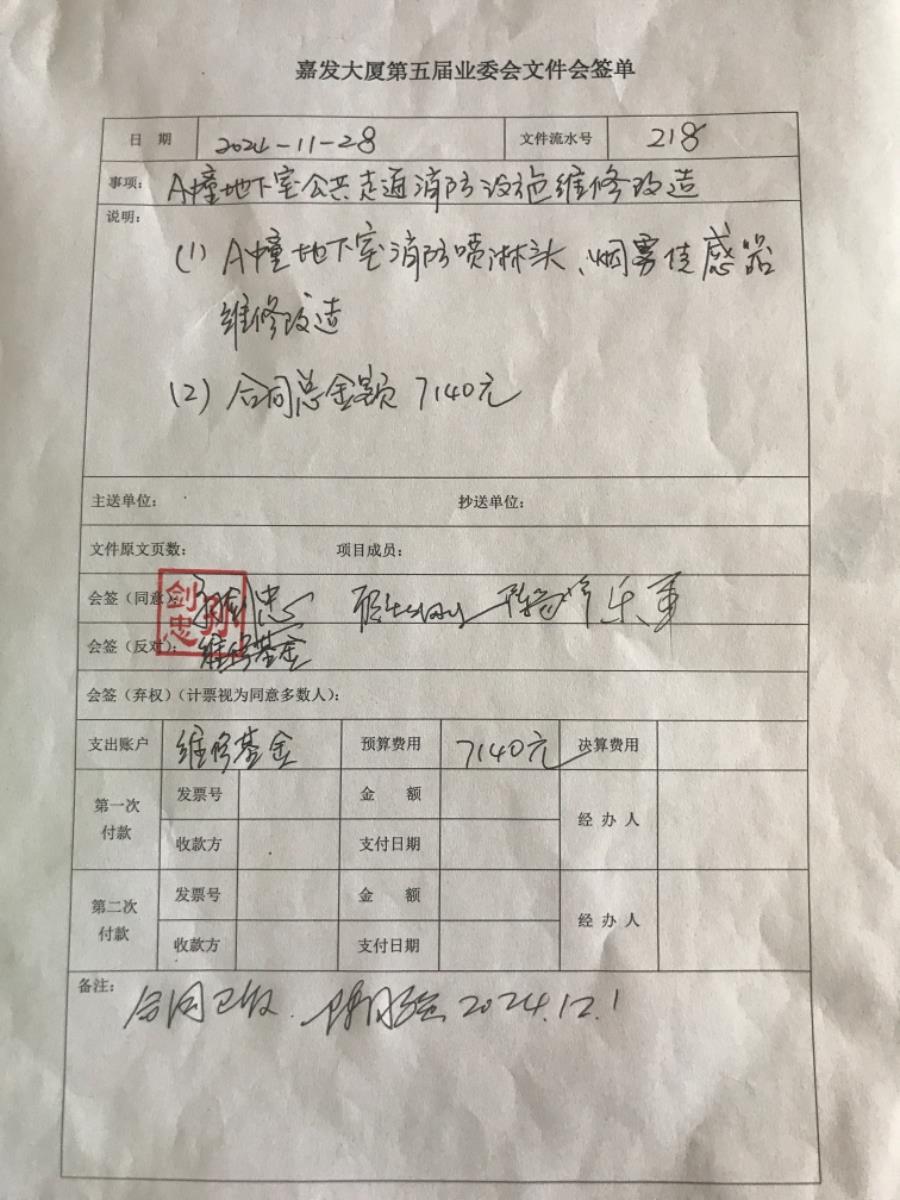 嘉发大厦第五届业委会文件会签单
日 期 2024-11-28 文件流水号 218
事项: A幢地下室公共走道消防设施维修改造
说明:
(1) A幢地下室消防喷淋头、烟雾传感器
维修改造
(2) 合同总金额 7140元
主送单位: 抄送单位:
文件原文页数: 项目成员:
会签(同意):
剑忠
会签(反对): 维修基金
会签(弃权)(计票视为同意多数人):
支出账户 维修基金 预算费用 7140元 决算费用
第一次付款 发票号 金 额 经 办 人
收款方 支付日期
第二次付款 发票号 金 额 经 办 人
收款方 支付日期
备注:
合同已收. 2024.12.1